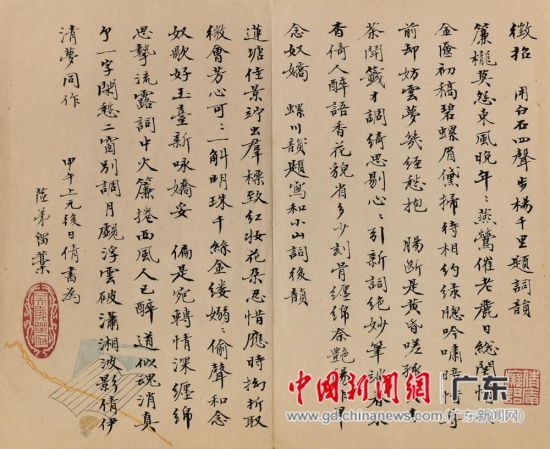 徵招 用白石四聲步楊千里題詞韻
簾櫳莫怨東風晚年〻燕鶯催老麗日總閑情
金匲初稿碧螺眉儻掃待相約綠牕吟嘯暗情
前却妨雲夢幾經愁抱 腸斷是黃昏嗟
茶閒才調綺思剔心〻引新詞絕妙筆談春來
香倚人醉語香花貌省多少刻骨纏綿奈艷易早
念奴嬌 螺川韻題寫和小山詞後韻
蓮塘佳景竚出羣標致紅妝花朵忍惜應時拗折取
徵會芳心可〻一斛明珠千絲金縷嫋〻偷聲和念
奴歌好玉臺新咏嬌妥 偏是宛轉情深纏綿
思摯流露詞中火簾捲西風人已醉 道似魂消真
个一字閑愁二窗別調月覷浮雲破瀟湘波影倩伊
清夢同作
甲午上元後日倩書為
中國新聞網 广东
www.gd.chinanews.com (广东新闻网)